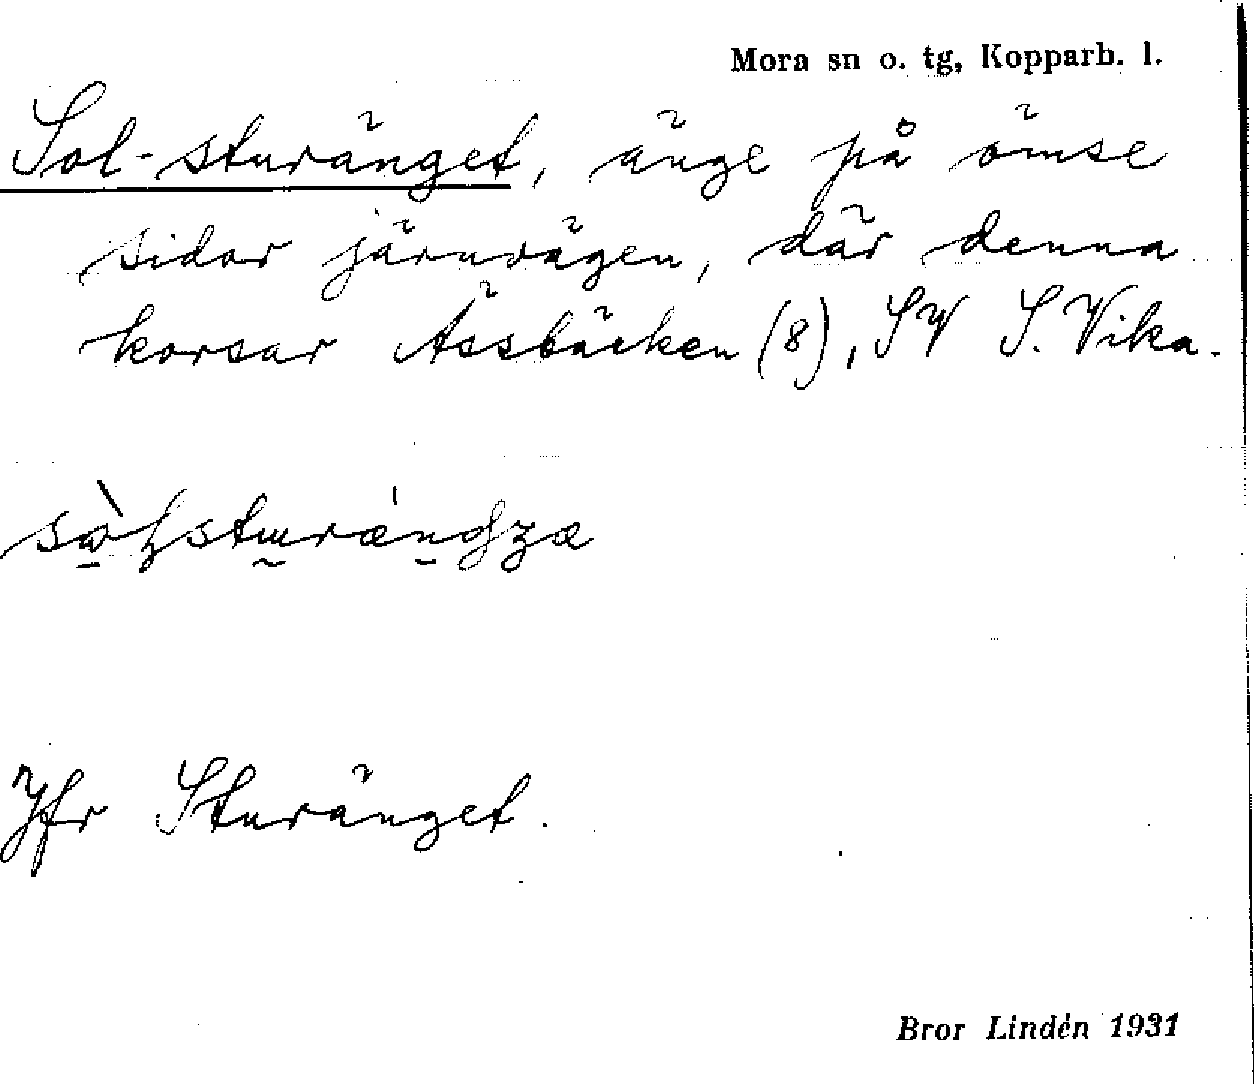 Mora sn o. tg, Kopparb. l.
Sol-sturänget, änge på ömse
sidor järnvägen, där denna
korsar Ässbäcken (8), SV S. Vika.
Jfr Sturänget.
Bror Lindén 1931